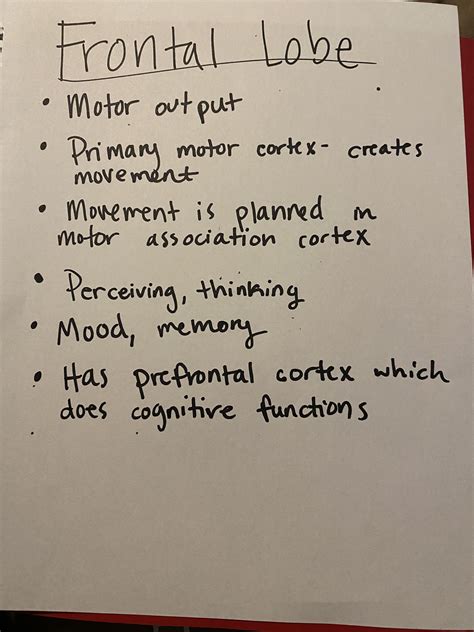 Frontal Lobe
• Motor output
• Primary motor cortex- creates
movement
• Movement is planned in
motor association cortex
• Perceiving, thinking
• Mood, memory
• Has prefrontal cortex which
does cognitive functions